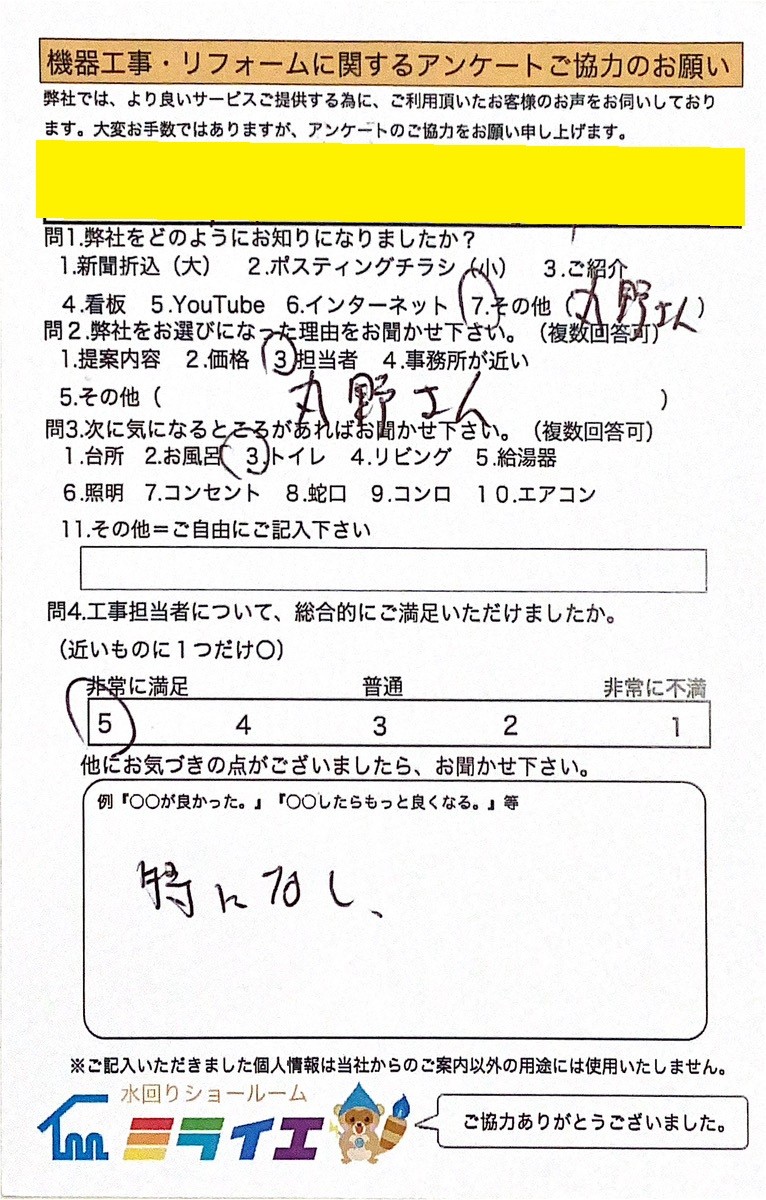 機器工事・リフォームに関するアンケートご協力のお願い
弊社では、より良いサービスご提供する為に、ご利用頂いたお客様のお声をお伺いしており
ます。大変お手数ではありますが、アンケートのご協力をお願い申し上げます。
問1.弊社をどのようにお知りになりましたか？
1.新聞折込（大） 2.ポスティングチラシ（小） 3.ご紹介
4.看板 5.YouTube 6.インターネット 7.その他（丸野さん）
問２.弊社をお選びになった理由をお聞かせ下さい。（複数回答可）
1.提案内容 2.価格 3担当者 4.事務所が近い
5.その他（丸野さん）
問3.次に気になるところがあればお聞かせ下さい。（複数回答可）
1.台所 2.お風呂 3.トイレ 4.リビング 5.給湯器
6.照明 7.コンセント 8.蛇口 9.コンロ 10.エアコン
11.その他＝ご自由にご記入下さい
問4.工事担当者について、総合的にご満足いただけましたか。
（近いものに１つだけ〇）
非常に満足 普通 非常に不満
5 4 3 2 1
他にお気づきの点がございましたら、お聞かせ下さい。
例『〇〇が良かった。』『〇〇したらもっと良くなる。』等
特になし、
※ご記入いただきました個人情報は当社からのご案内以外の用途には使用いたしません。
水回りショールーム
ミライエ
ご協力ありがとうございました。